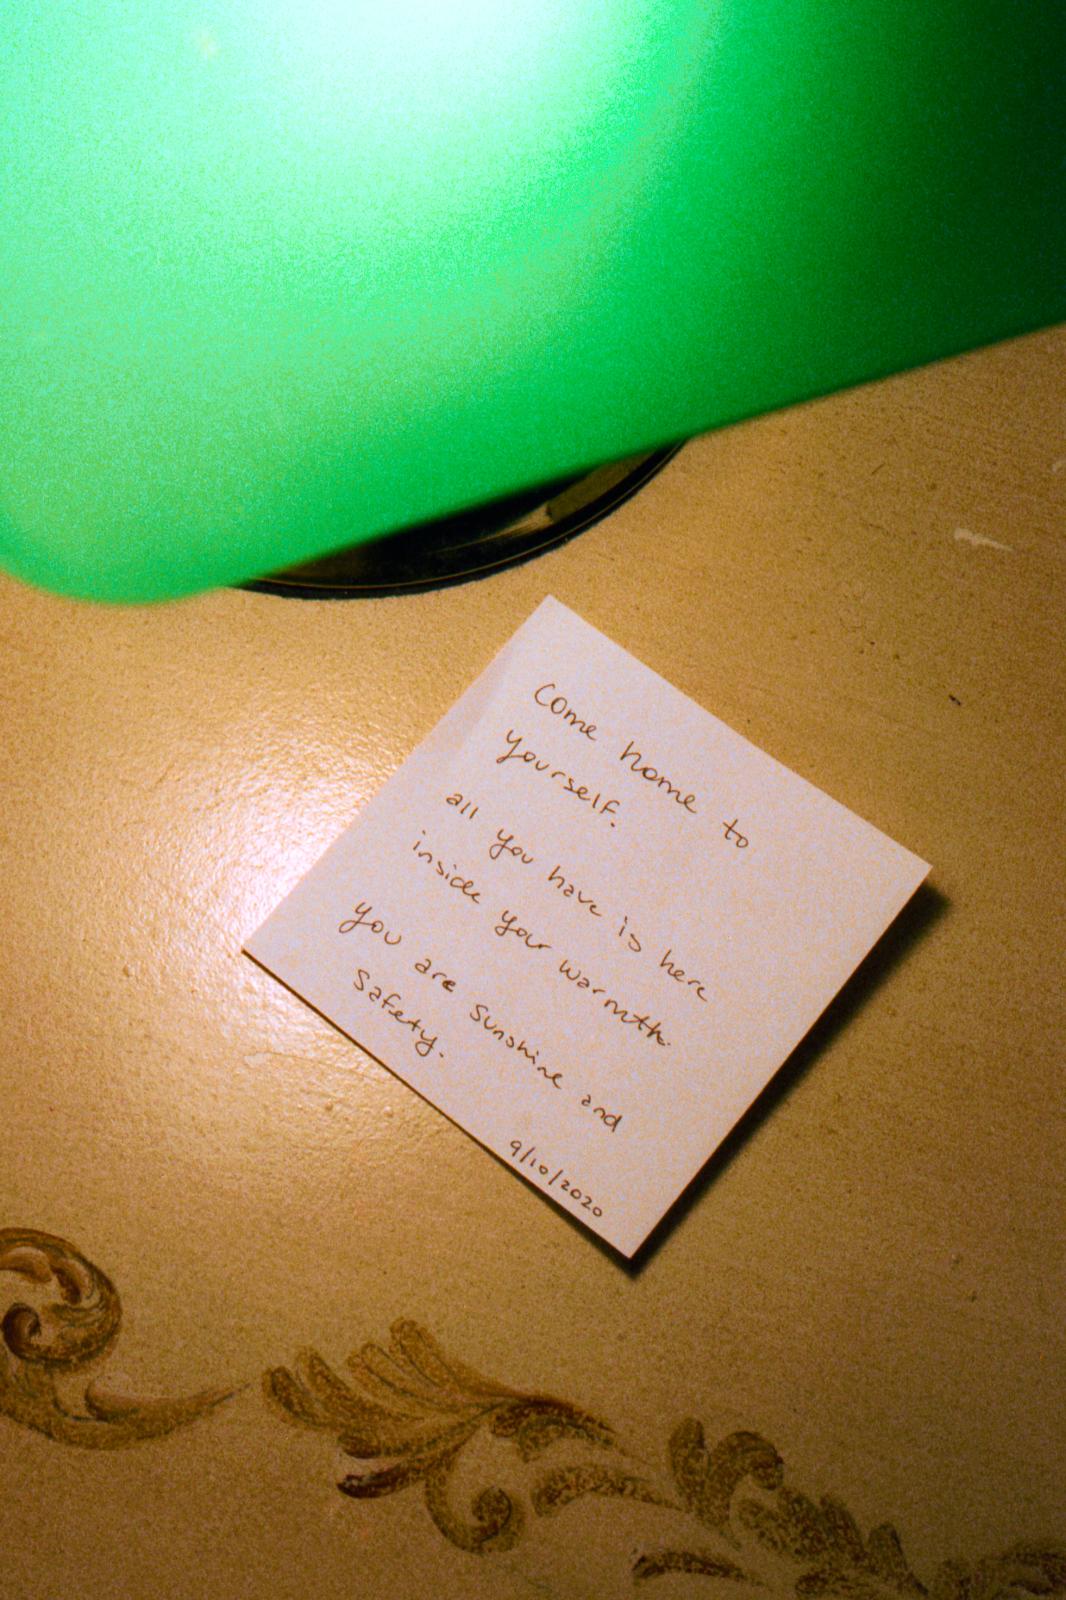 Come home to
yourself.
all you have is here
inside your warmth.
you are sunshine and
safety.
9/10/2020